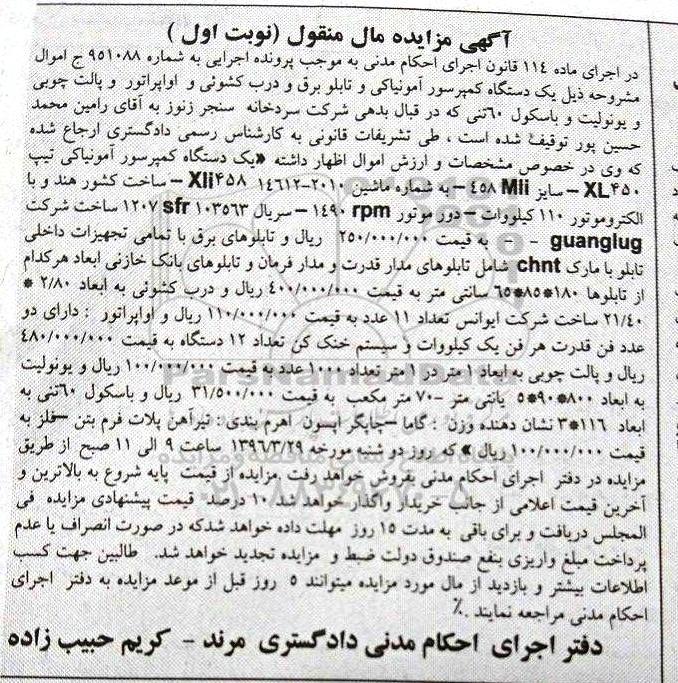 آگهی مزایده مال منقول (نوبت اول )
در اجرای ماده ۱۱۴ قانون اجرای احکام مدنی به موجب پرونده اجرایی به شماره ۹۵۱۰۸۸ ج اموال
مشروحه ذیل یک دستگاه کمپرسور آمونیاکی و تابلو برق و درب کشوئی و اواپراتور و پالت چوبی
و یونولیت و باسکول ۶۰تنی که در قبال بدهی شرکت سردخانه سنجر زنوز به آقای رامین محمد
حسین پور توقیف شده است ، طی تشریفات قانونی به کارشناس رسمی دادگستری ارجاع شده
که وی در خصوص مشخصات و ارزش اموال اظهار داشته «یک دستگاه کمپرسور آمونیاکی تیپ
XL۴۵۰ – سایز ۴۵۸ Mli – به شماره ماشین ۲۰۱۰-۱۴۶۱۲ Xli۴۵۸ – ساخت کشور هند و با
الکتروموتور ۱۱۰ کیلووات – دور موتور ۱۴۹۰ rpm – سریال ۱۰۳۵۶۳ ۱۲۰۷ sfr ساخت شرکت
guanglug - - به قیمت ۲۵۰/۰۰۰/۰۰۰ ریال و تابلوهای برق با تمامی تجهیزات داخلی
تابلو با مارک chnt شامل تابلوهای مدار قدرت و مدار فرمان و تابلوهای بانک خازنی ابعاد هرکدام
از تابلوها ۱۸۰*۸۵*۶۵ سانتی متر به قیمت ۴۰۰/۰۰۰/۰۰۰ ریال و درب کشوئی به ابعاد ۲/۸۰ *
۲۱/۴۰ ساخت شرکت ایوانس تعداد ۱۱ عدد به قیمت ۱۱۰/۰۰۰/۰۰۰ ریال و اواپراتور : دارای دو
عدد فن قدرت هر فن یک کیلووات و سیستم خنک کن تعداد ۱۲ دستگاه به قیمت ۴۸۰/۰۰۰/۰۰۰
ریال و پالت چوبی به ابعاد ۱ متر در ۱ متر تعداد ۱۰۰۰ عدد به قیمت ۱۰۰/۰۰۰/۰۰۰ ریال و یونولیت
به ابعاد ۸۰۰*۹۰*۵ یانتی متر –۷۰ متر مکعب به قیمت ۳۱/۵۰۰/۰۰۰ ریال و باسکول ۶۰تنی به
ابعاد ۱۱۶*۳ نشان دهنده وزن : گاما –جاپگر اپسون اهرم بندی : تیرآهن پلات فرم بتن –فلز به
قیمت ۱۰۰/۰۰۰/۰۰۰ ریال » که روز دو شنبه مورخه ۱۳۹۶/۳/۲۹ ساعت ۹ الی ۱۱ صبح از طریق
مزایده در دفتر اجرای احکام مدنی بفروش خواهد رفت .مزایده از قیمت پایه شروع به بالاترین و
آخرین قیمت اعلامی از جانب خریدار واگذار خواهد شد ۱۰ درصد قیمت پیشنهادی مزایده فی
المجلس دریافت و برای باقی به مدت ۱۵ روز مهلت داده خواهد شدکه در صورت انصراف یا عدم
پرداخت مبلغ واریزی بنفع صندوق دولت ضبط و مزایده تجدید خواهد شد. طالبین جهت کسب
اطلاعات بیشتر و بازدید از مال مورد مزایده میتوانند ۵ روز قبل از موعد مزایده به دفتر اجرای
احکام مدنی مراجعه نمایند .٪
دفتر اجرای احکام مدنی دادگستری مرند - کریم حبیب زاده
ParsNamadData